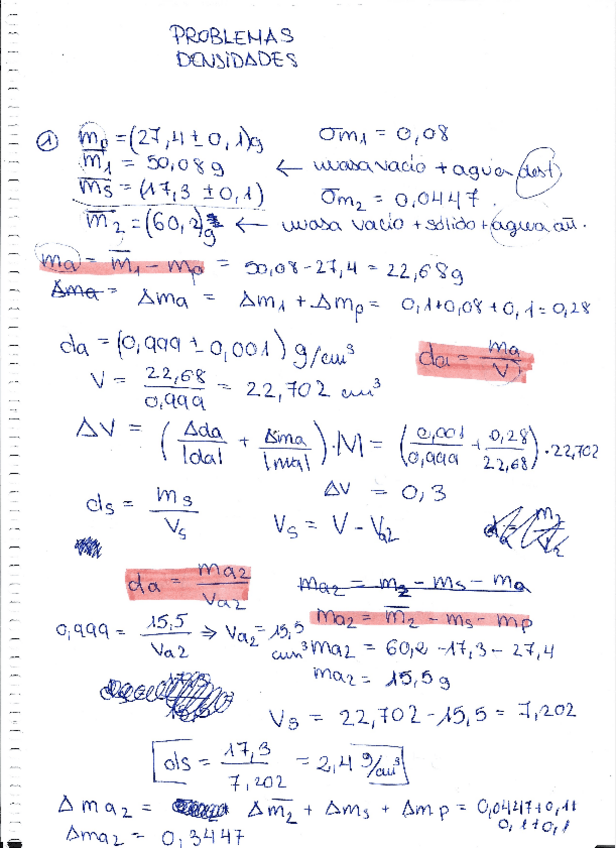 PROBLEMAS
DENSIDADES
① m̅p = (27,4 ± 0,1)g σm1 = 0,08
m̅1 = 50,08g ← masa vacio + agua dest
m̅s = (17,3 ± 0,1) σm2 = 0,0447.
m̅2 = (60,2)g ← masa vacio + sólido + agua dti.
ma = m̅1 - mp = 50,08 - 27,4 = 22,68g
Δma = Δma = Δm1 + Δmp = 0,1+0,08+0,1 = 0,28
da = (0,999 ± 0,001) g/cm³ da = ma/V
V = 22,68/0,999 = 22,702 cm³
ΔV = (Δda/|da| + Δma/|ma|)·|V| = (0,001/0,999 + 0,28/22,68)·22,702
ds = ms/Vs ΔV = 0,3
Vs = V - Va2
da = ma2/Va2 ma2 = m2 - ms - ma
ma2 = m̅2 - ms - mp
0,999 = 15,5/Va2 ⇒ Va2 = 15,5 cm³ ma2 = 60,2 - 17,3 - 27,4
ma2 = 15,5g
Vs = 22,702 - 15,5 = 7,202
ds = 17,3/7,202 = 2,4 g/cm³
Δma2 = Δm̅2 + Δms + Δmp = 0,0447+0,1+
0,1+0,1
Δma2 = 0,3447